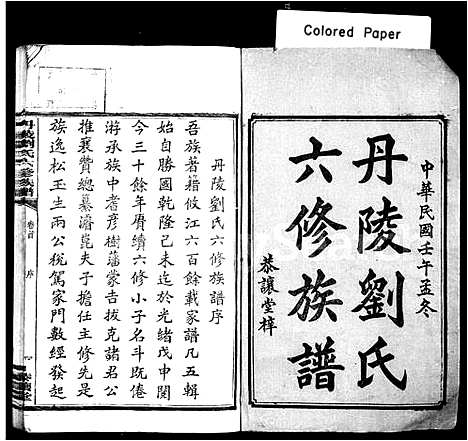 Colored Paper
中華民國壬午孟冬
丹陵劉氏
六修族譜
恭讓堂梓
丹陵劉氏六修族譜序
吾族著籍攸江六百餘載家譜凡五輯
始自勝國乾隆己未迄於光緒戊申閱
今三十餘年賡續六修小子名斗既倦
游承族中耆彥樹藩蒙吉拔克諸君公
推襄贊總纂濬崑夫子擔任主修先是
族逸松玉生兩公稅駕家門數經發起
丹陵劉氏六修族譜
卷首
序